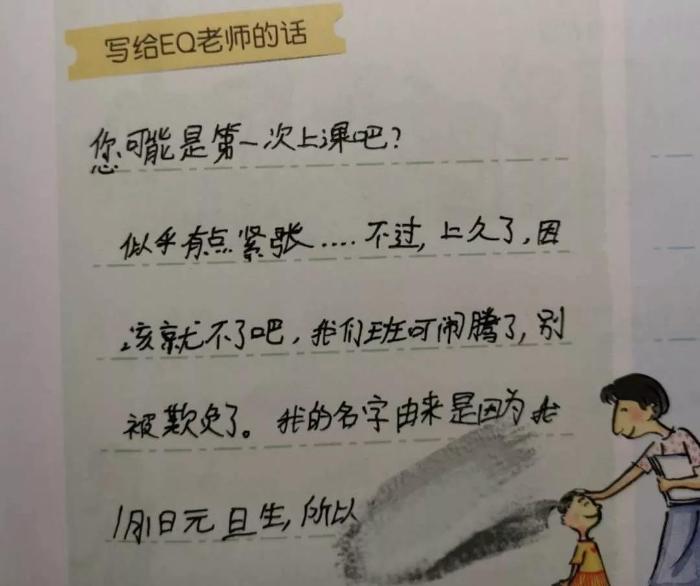 写给EQ老师的话
您可能是第一次上课吧？
似乎有点紧张....不过，上久了，因
该就不了吧，我们班可闹腾了，别
被欺负了。我的名字由来是因为我
1月1日元旦生，所以